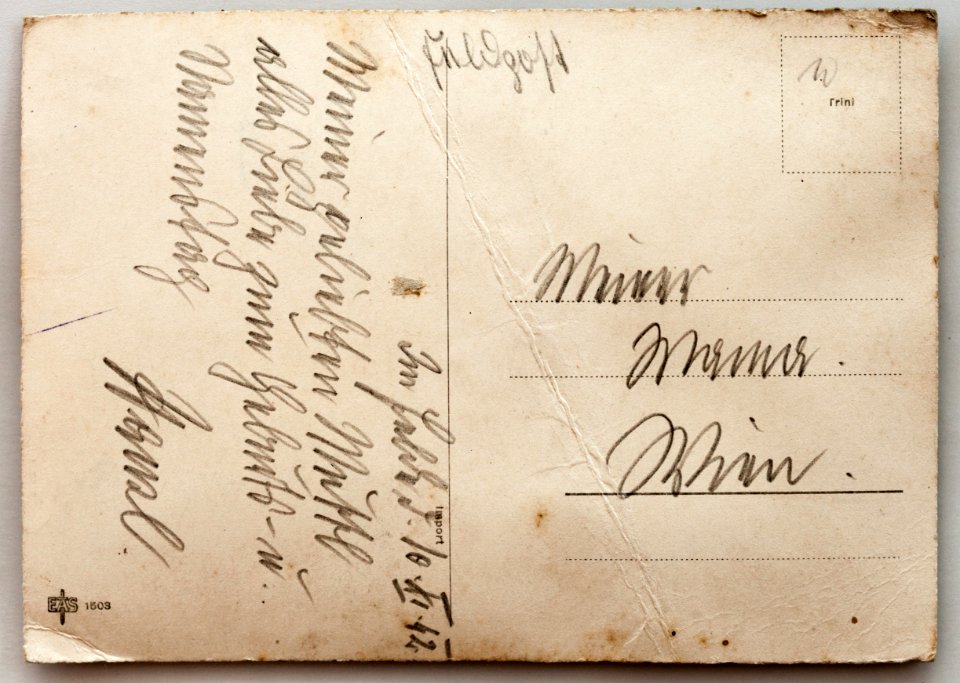 Feldpost
Trini
Meiner
Mama.
Wien.
Im Felde 10.XI.42
Meiner geliebten Mutter
alles Liebe zum Geburts- u.
Namenstag
Import
EAS 1503